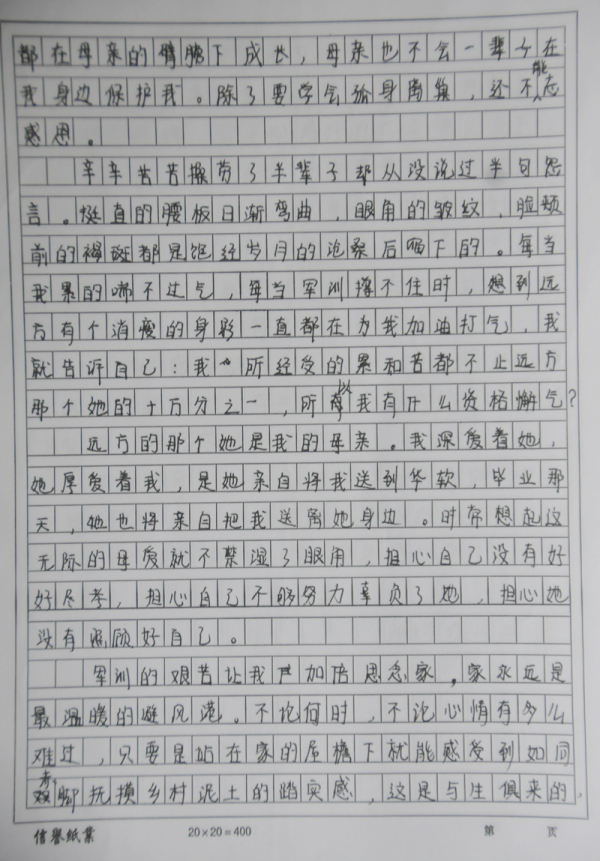 都在母亲的臂膀下成长，母亲也不会一辈子在
我身边保护我。除了要学会独身离巢，还不能忘
感恩。
辛辛苦苦操劳了半辈子却从没说过半句怨
言。挺直的腰板日渐弯曲，眼角的皱纹，脸颊
前的褐斑都是饱经岁月的沧桑后留下的。每当
我累的喘不过气，每当军训撑不住时，想到远
方有个消瘦的身影一直都在为我加油打气，我
就告诉自己：我所经受的累和苦都不止远方
那个她的十万分之一，所以我有什么资格懈气？
远方的那个她是我的母亲。我深爱着她，
她厚爱着我，是她亲自将我送到华软，毕业那
天，她也将亲自把我送离她身边。时常想起这
无际的母爱就不禁湿了眼角，担心自己没有好
好尽孝，担心自己不够努力辜负了她，担心她
没有照顾好自己。
军训的艰苦让我严加倍思念家，家永远是
最温暖的避风港。不论何时，不论心情有多么
难过，只要是站在家的屋檐下就能感受到如同
赤脚抚摸乡村泥土的踏实感，这是与生俱来的，
信誉纸业 20×20=400 第 页